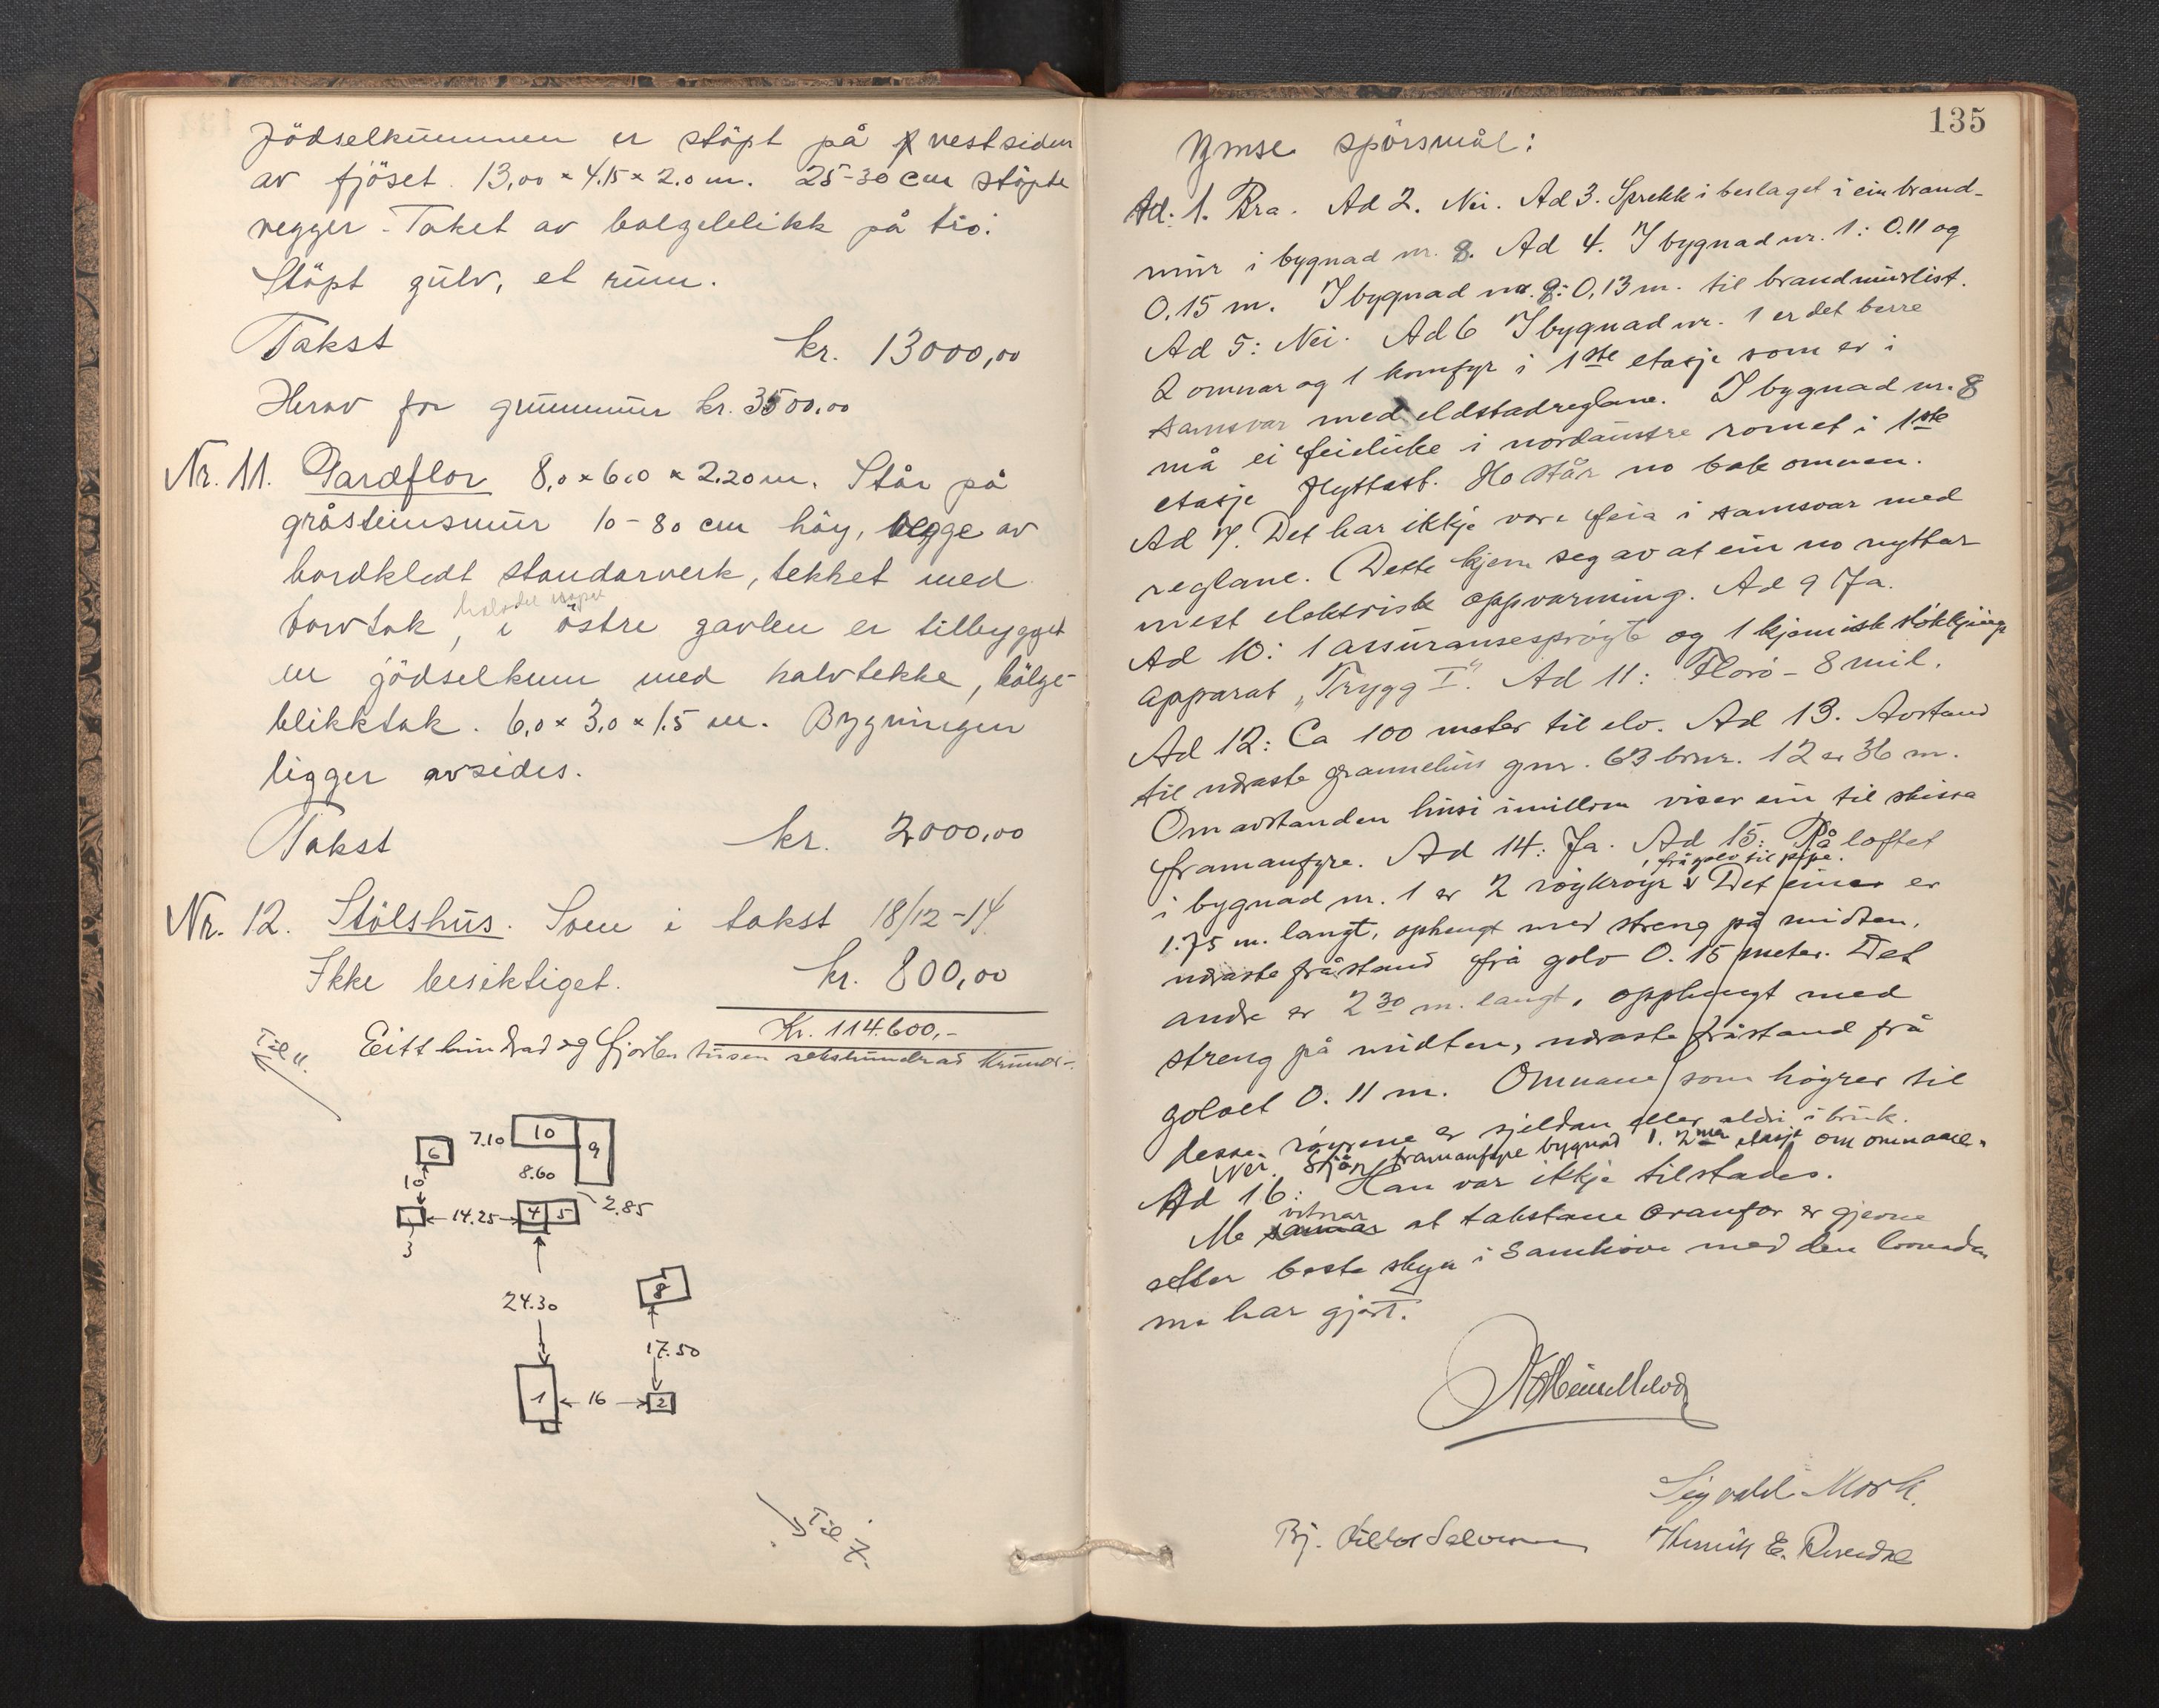 Jödselkummen er støpt på vestsiden
av fjöset. 13,00 × 4.15 × 2.0 m. 25-30 cm støpte
vegger. Taket av bølgeblikk på tro.
Støpt gulv, et rum.
Takst kr. 13000,00
Herav for grunnmur kr. 3500,00
Nr. 11. Vardflor 8,0 × 6,0 × 2.20 m. Står på
gråsteinsmur 10-80 cm høy, vegge av
bordkledt standarverk, tekket med
torvtak, i östre gavlen er tilbygget
en jödselkum med halvtekke, bölge-
blikktak. 6,0 × 3,0 × 1.5 m. Bygningen
ligger avsides.
Takst kr. 2000,00
Nr. 12. Stölshus. Som i takst 18/12-14.
Ikke besiktiget. kr. 800,00
Kr. 114.600,-
Eitt hundrad og fjorten tusen sekshundrad kronor-.
Til 11.
6
7.10
10
9
8.60
10
2.85
3
14.25
4 5
24.30
8
17.50
1
16
2
Til 7.
135
Ymse spörsmål:
Ad. 1. Bra. Ad 2. Nei. Ad 3. Sprekk i beslaget i ein brand-
mur i bygnad nr. 8. Ad 4. I bygnad nr. 1: 0.11 og
0.15 m. I bygnad nr. 8: 0,13 m. til brandmurlist.
Ad 5: Nei. Ad 6 I bygnad nr. 1 er det berre
2 omnar og 1 komfyr i 1ste etasje som er i
samsvar med eldstadreglane. I bygnad nr. 8
må ei feieluke i nordaustre romet i 1ste
etasje flyttast. Ho står no bak omnen.
Ad 7. Det har ikkje vore feia i samsvar med
reglane. (Dette kjem seg av at ein no nyttar
mest elektrisk oppvarming. Ad 9 Ja.
Ad 10: 1 assuransesprøyte og 1 kjemisk sløkkjings
apparat "Trygg I". Ad 11: Florö - 8 mil.
Ad 12: Ca 100 meter til elv. Ad 13. Avstand
til næraste grannehus gnr. 63 bnr. 12 er 36 m.
Om avstanden husi imillom viser ein til skissa
framanfyre. Ad 14: Ja. Ad 15: På loftet
, frå golv til pipe.
i bygnad nr. 1 er 2 röykröyr Det eine er
1.75 m. langt, ophengt med streng på midten,
næraste fråstand frå golv 0.15 meter. Det
andre er 2 30 m. langt, opphengt med
streng på midten, næraste fråstand frå
golvet 0.11 m. Omnane som höyrer til
desse röyrene er sjeldan eller aldri i bruk.
Nei. Sjå framanfyre bygnad 1. 2nen etasje om omnane.
Ad 16: Han var ikkje tilstades.
vitnar
Me sannar at takstane ovanfor er gjevne
etter beste skyn i samhøve med den lovnaden
me har gjort.
Sigvald Mork.